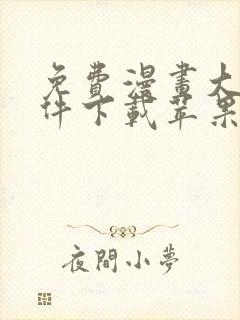 免費漫畫大
件下載苹果
夜間小夢